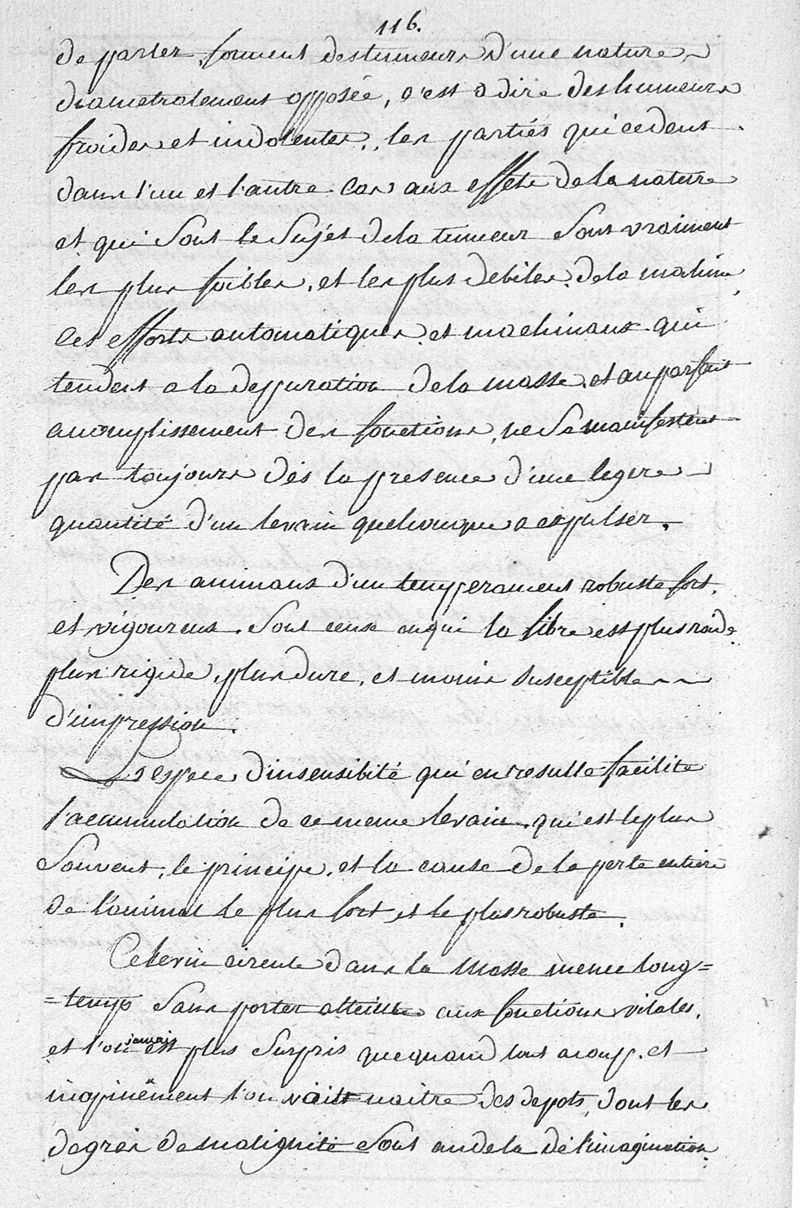 116.
de parler, forment des tumeurs d'une nature
diametralement opposée, c'est a dire des humeurs
froides et indolentes, les parties qui cedent
dans l'un et l'autre cas aux effets de la nature
et qui sont le sujet de la tumeur sont vraiment
les plus foibles, et les plus debiles de la machine,
Ces efforts automatiques et machinaux qui
tendent a la depuration de la masse, et au parfait
accomplissement des fonctions, ne se manifestent
pas toujours dès la presence d'une legere
quantité d'un levain quelconque a expulser.
Des animaux d'un temperament robuste fort,
et vigoureux. Sont ceux en qui la fibre est plus roide
plus rigide, plus dure, et moins susceptible
d'impression.
L'espece d'insensibilité qui en resulte facilite
l'accumulation de ce meme levain, qui est le plus
souvent, le principe, et la cause de la perte entiere
de l'animal le plus fort, et le plus robuste.
Ce levin circule dans la masse meme long=
=temps sans porter atteinte aux fonctions vitales,
et l'on n'est jamais plus surpris que quand tout acoup, et
inopinëment l'on voit naitre des depots, dont les
degrés de malignité sont audela de l'imagination